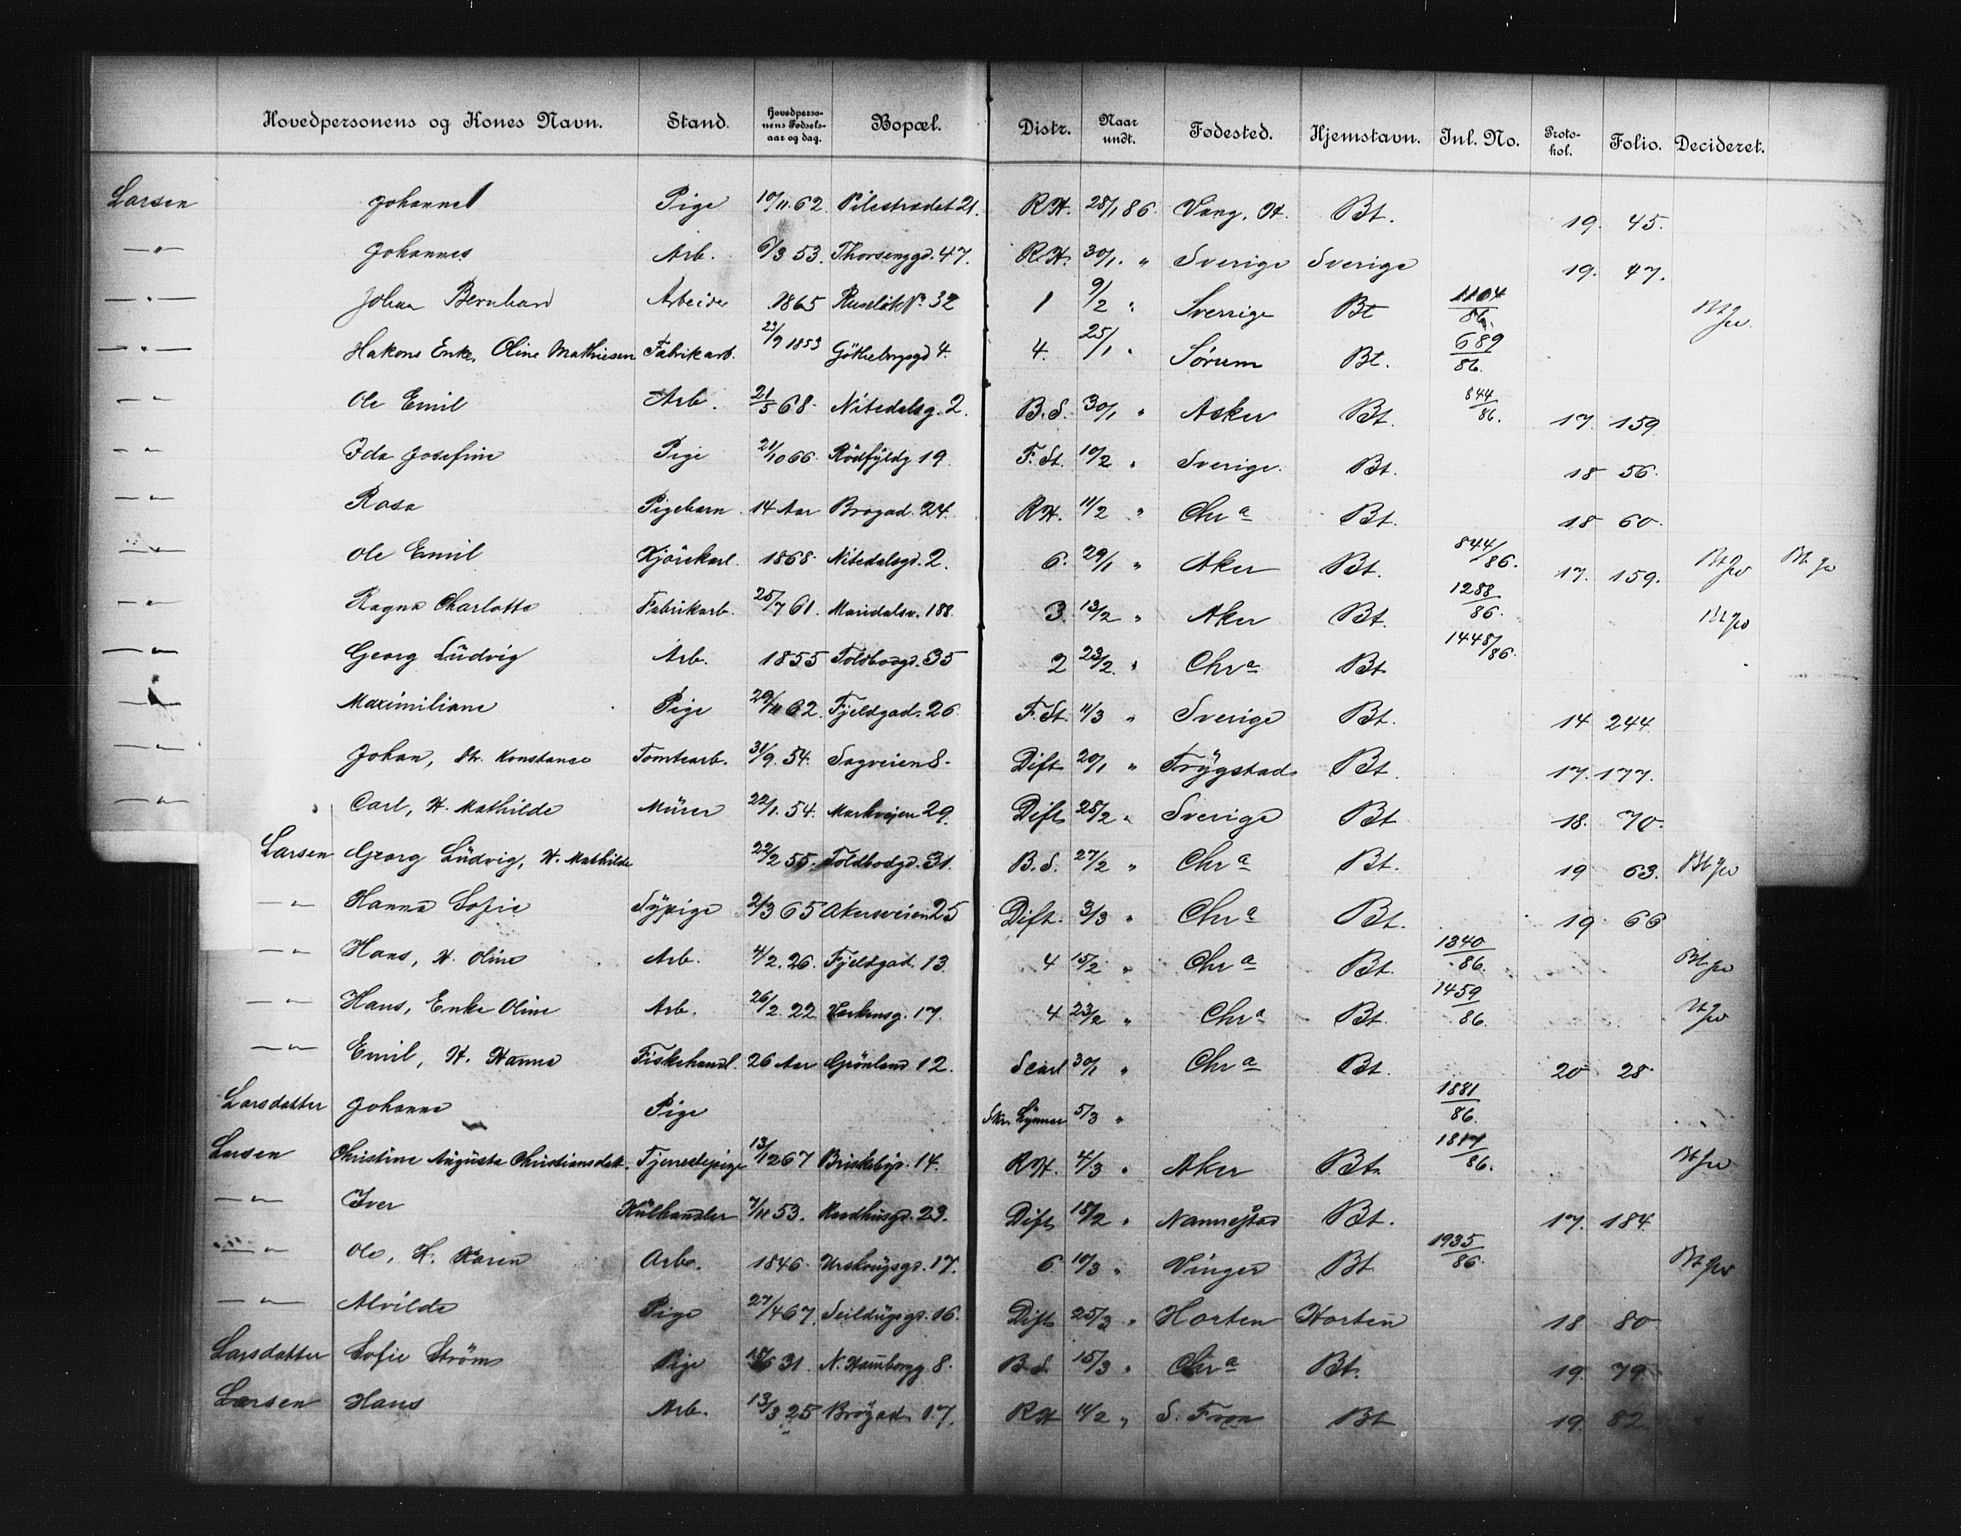 Hovedpersonens og Kones Navn. Stand. Hovedpersonens Fødsels-aar og dag. Bopæl. Distr. Naar undt. Fødested. Hjemstavn. Inl. No. Protokol. Folio. Decideret.
Larsen Johanne Pige 10/11 62 Pilestrædet 21. R.H. 28/1 86. Vang, H. Bt. 19. 45.
—"— Johannes Arb. 6/3 53. Thorsenggd. 47. R.H. 30/1. " Sverige Sverige 19. 47.
—"— Johan Bernhard Arbeider 1865 Ruseløk V. 32 1 9/2 " Sverrige Bt 1104/86. Bt
—"— Hakons Enke, Oline Mathiesen Fabrikarb. 23/9 1853 Götheborgsgd 4. 4. 25/1 " Sørum Bt. 689/86.
—"— Ole Emil Arb. 21/5 68. Nitedalsg. 2. B.S. 30/1 " Asker Bt. 844/86. 17. 159.
—"— Ida Josefine Pige 21/10 66. Rödfyldg 19. F.St. 10/2 " Sverige. Bt. 18 56.
—"— Rosa Pigebarn. 14 Aar Brogad. 24. R.H. 11/2 " Chr a Bt. 18 60.
—"— Ole Emil Kjörekarl. 1868. Nitedalsgd. 2. 6. 29/1 " Aker Bt. 844/86. 17. 159. Bt Bt
—"— Ragna Charlotte Fabrikarb. 25/7 61. Maridalsv. 188. 3. 13/2 " Aker Bt. 1288/86. Bt
—"— Georg Lüdvig Arb. 1855 Toldbodgd. 35 2 23/2. " Chr a Bt. 1448/86.
—"— Maximiliane Pige 29/11 62. Fjeldgad. 26. F.St. 11/3 " Sverige Bt. 14 244.
—"— Johan, H. Konstance Tomtearb. 31/9. 54. Sagveien 8. Dift 20/1 " Trÿgstad Bt. 17. 177.
—"— Carl, H. Mathilde Mürer 22/1. 54. Markvejen 29. Dift 28/2 " Sverige Bt 18. 70.
Larsen Georg Lüdvig, H. Mathilde 22/2 55. Toldbodgd. 31. B.S. 27/2 " Chr a Bt. 19 63. Bt
—"— Hanna Sofie Sÿpige 2/3 65 Akersveien 25 Dift. 3/3 " Chr a Bt. 19. 66
—"— Hans, H. Oline Arb. 4/2. 26. Fjeldgad. 13. 4 15/2 " Chr a Bt. 1340/86. Bt
—"— Hans, Enke Oline Arb. 26/2 22 17. 4 23/2 " Chr a Bt. 1459/86. Bt
—"— Emil, H. Hanna Fiskehandl. 26 Aar Grönland 12. 30/1 " Chr a Bt. 20 28.
Larsdatter Johanne Pige 5/3 " 1881/86.
Larsen Christine Augusta Christiansdatt. Tjenestepige 13/12 67 Briskebyv. 14. R.H. 4/3 " Aker Bt. 1817/86. Bt
—"— Iver Külhandler 7/11 53. Raadhüsgd. 23. Dift 18/2 " Nannestad Bt. 17. 184.
—"— Ole, H. Karen Arb. 1846. Urskougsgd. 17. 6. 10/3 " Vinger Bt 1935/86. Bt
—"— Alvilde Pige 27/4 67. Seildügsgd. 16. Dift 25/3 " Horten Horten 18 80
Larsdatter Sofie Ström Pige 31. N. Hamborgg 8. B.S. 15/3 " Chr a Bt. 19. 79
Larsen Hans Arb. 13/3 25 Brogad. 17. R.H 11/2 " S. Fron Bt 19. 82